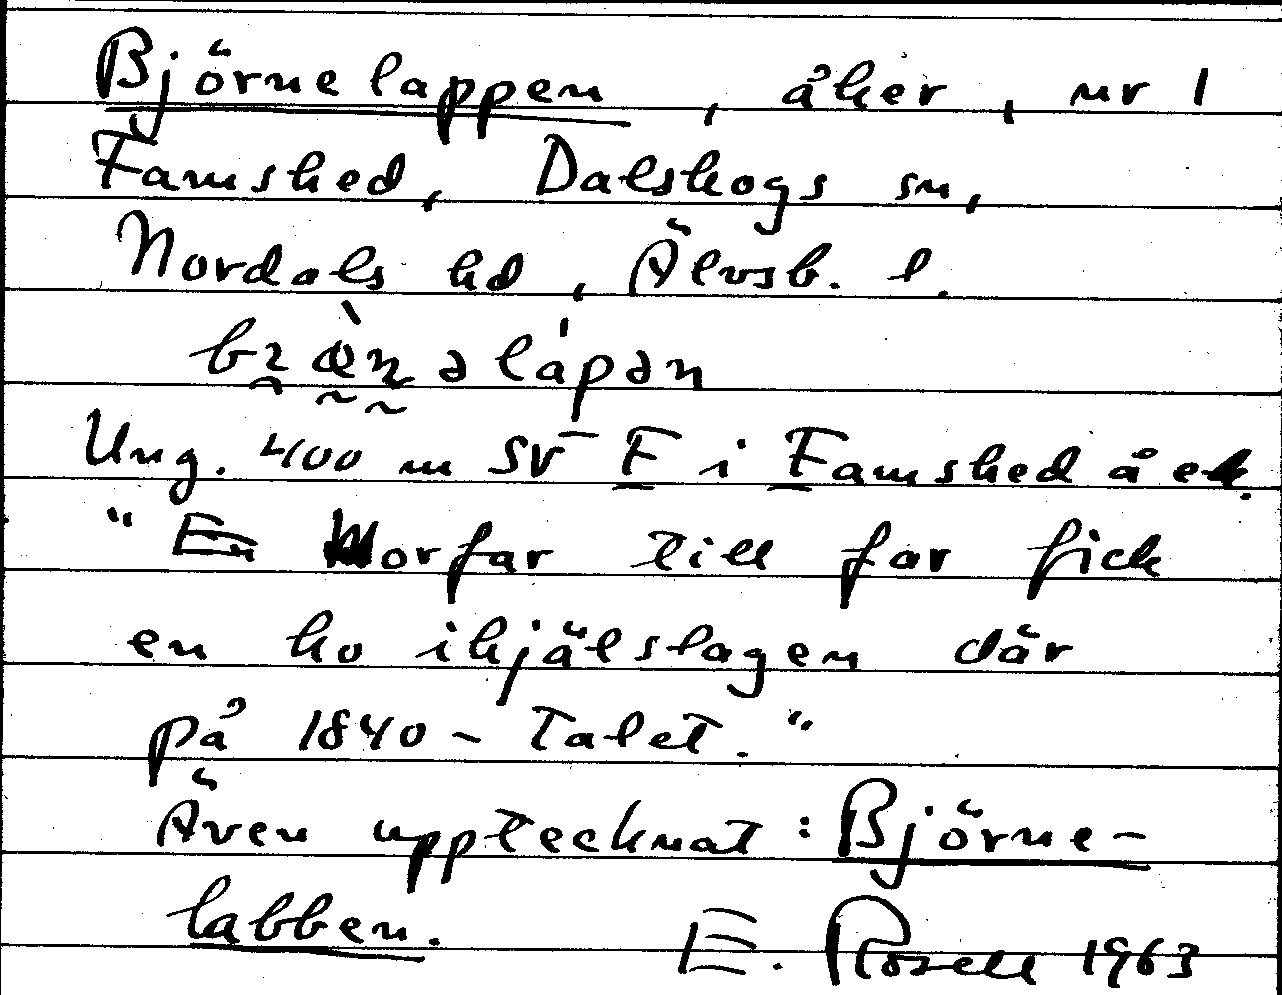 Björnelappen, åker, nr 1
Famshed, Dalskogs sn,
Nordals hd, Älvsb. l.
Ung. 400 m SV F i Famshed å ek.
"En Morfar till far fick
en ko ihjälslagen där
på 1840-talet."
Även upptecknat: Björne-
labben. E. Rosell 1963